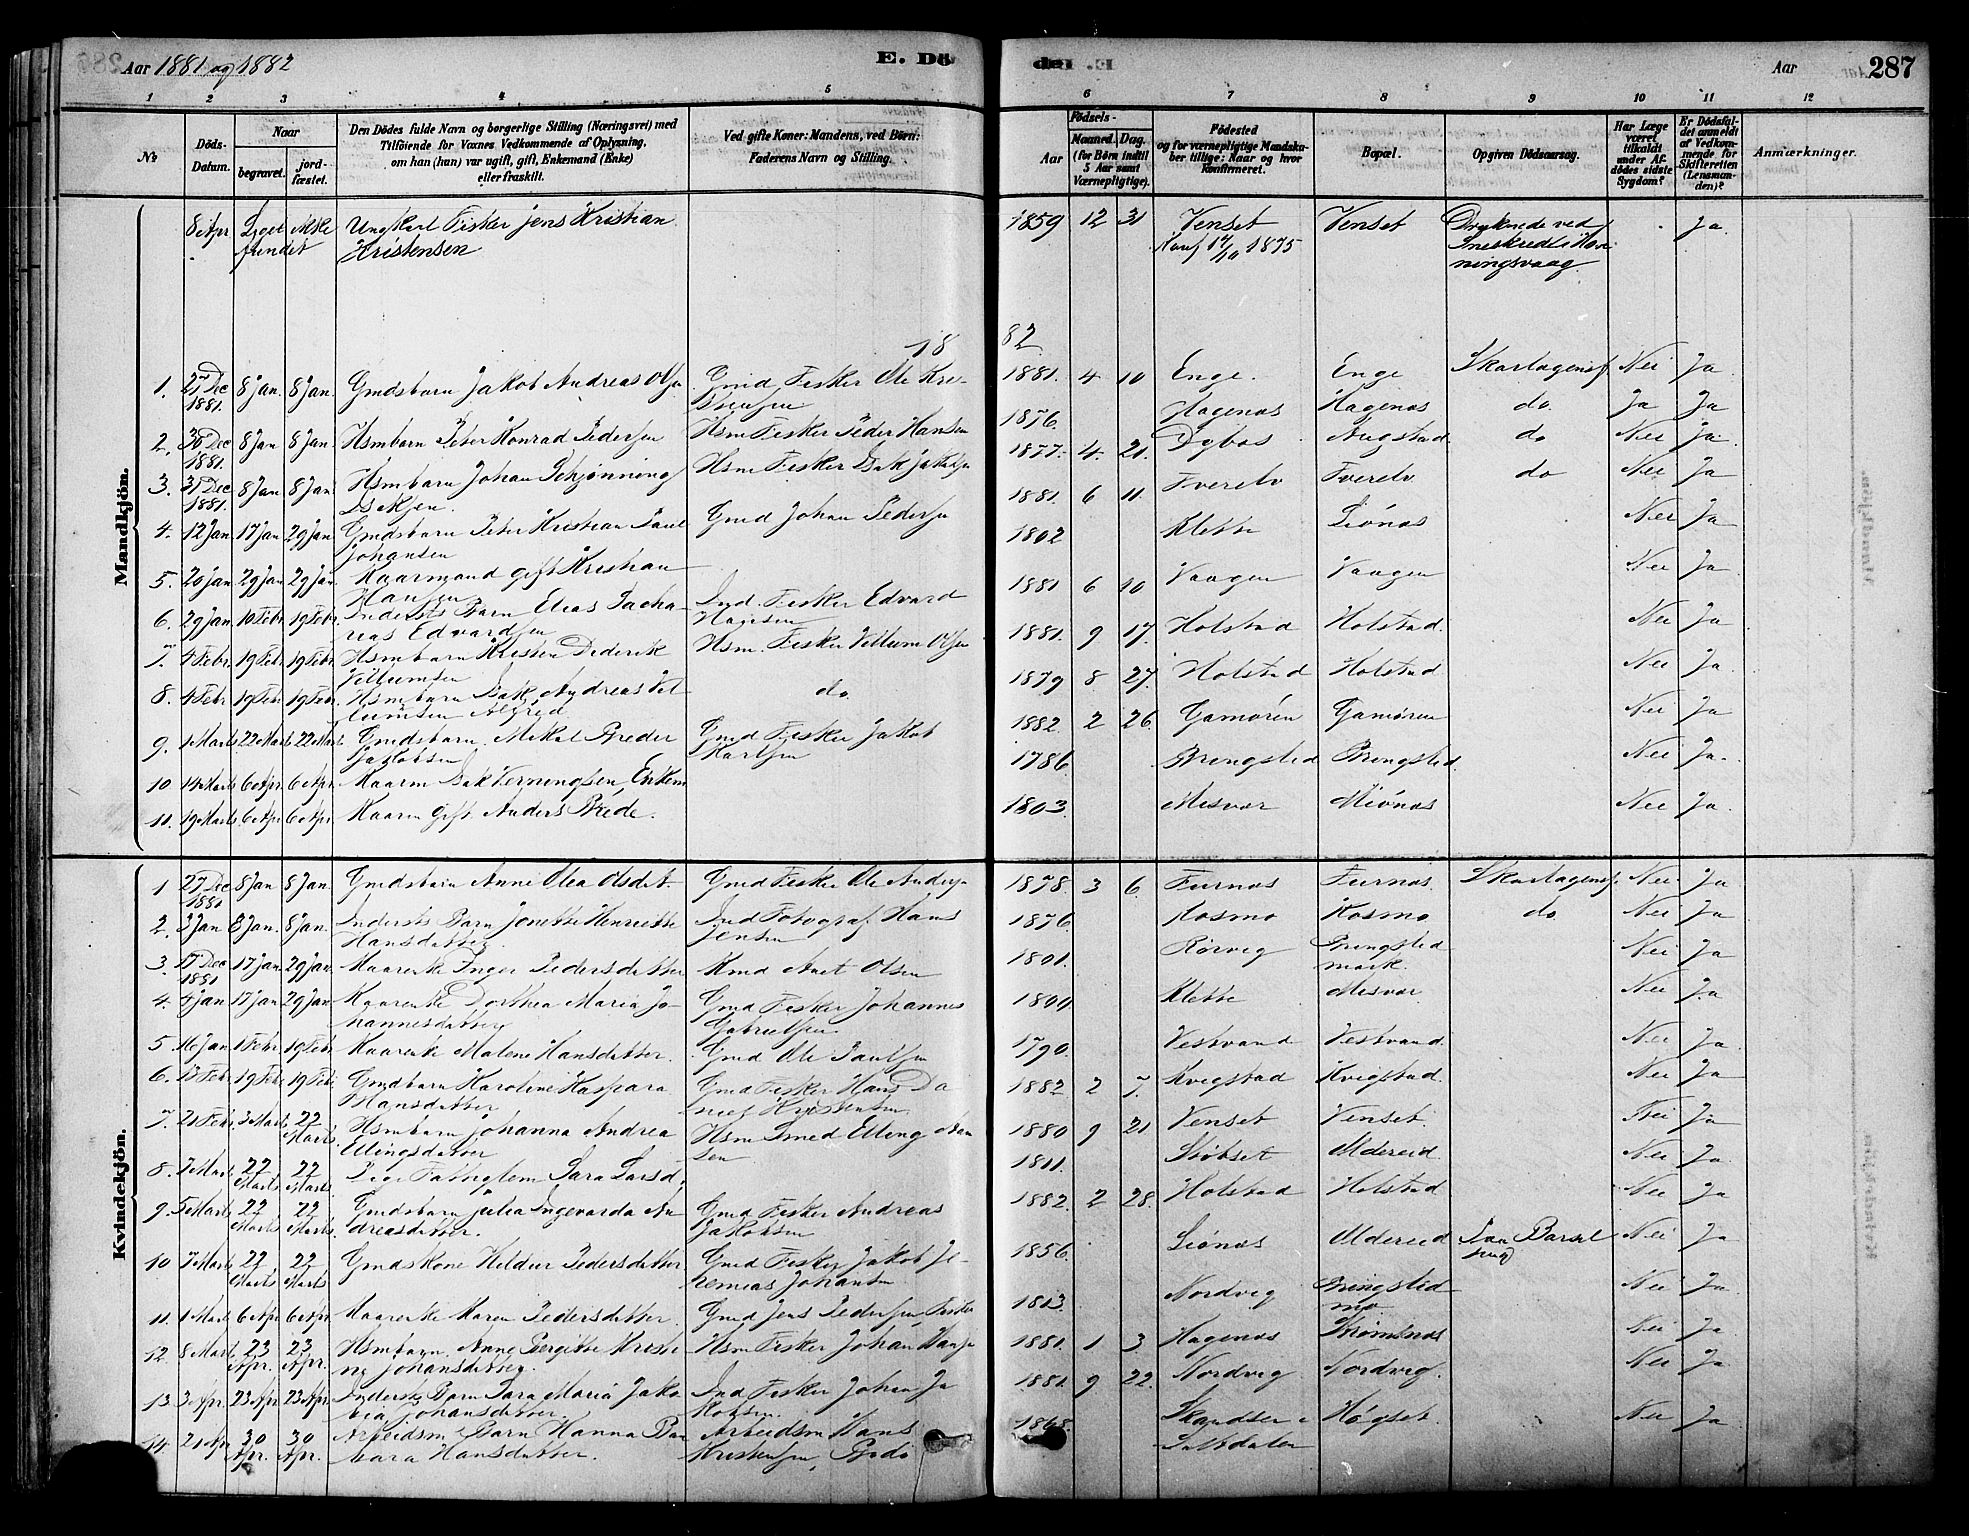 Aar 1881 og 1882
E. Dö
der. E.
Aar
287
1 2 3 4 5 6 7 8 9 10 11 12
No
Döds-Datum.
Naar
begravet.
jordfæstet.
Den Dödes fulde Navn og borgerlige Stilling (Næringsvei) med
Tilföiende for Voxnes Vedkommende af Oplysning,
om han (hun) var ugift, gift, Enkemand (Enke)
eller fraskilt.
Ved gifte Koner: Mandens, ved Börn:
Faderens Navn og Stilling.
Födsels-
Aar
Maaned. Dag.
(for Börn indtil
5 Aar samt
Værnepligtige).
Födested
og for værnepligtige Mandskaber tillige: Naar og hvor
Konfirmeret.
Bopæl.
Opgiven Dödsaarsag.
Har Læge været tilkaldt under Afdödes sidste Sygdom?
Er Dödsfaldet anmeldt af Vedkommende for Skifteretten (Lensmanden)?
Anmærkninger.
Mandkjön.
8 Apr Liget ikke fundet Ungkarl Fisker Jens Kristian Kristensen 1859 12 31 Venset Konf 17/10 1875 Venset Druknede ved Sneskred i Honningsvaag Ja
1882
1. 27 Dec 1881. 8 Jan 8 Jan. Gmdsbarn Jakob Andreas Olsen Gmd Fisker Ole 1881. 4 10 Enge. Enge Skarlagensf. Nei Ja
2. 30 Dec 1881. 8 Jan 8 Jan Hsmbarn Peter Konrad Pedersen Hsm Fisker Peder Hansen 1876. Hagenæs Hagenæs do. Ja Ja
3. 31 Dec 1881. 8 Jan 8 Jan Hsmbarn Johan Schjønning Isaksen. Hsm Fisker Isak Jakobsen 1877. 4. 21. Augstad do Nei Ja
4. 12 Jan 17 Jan 29 Jan Gmdsbarn Peter Kristian Paul Johansen Gmd Johan Pedersen 1881. 6 11. Tverelv Tverelv. do Nei Ja
5. 20 Jan 29 Jan 29 Jan Kaarmand gift Kristian Hansen 1802 Klette Liönæs Nei Ja
6. 29 Jan 10 Febr 19 Febr Inderst Barn Elias Zacharias Edvardsen Ind. Fisker Edvard Hansen 1881 6 10 Vaagen Vaagen Nei Ja
7. 4 Febr. 19 Febr 19 Febr. Hsmbarn Kristen Diderik Villumsen Hsm. Fisker Villum Olsen 1881. 9 17. Holstad Holstad. Nei Ja
8. 4 Febr 19 Febr 19 Febr Hsmbarn Isak Andreas Villumsen Alfred do. 1879 8 27. Holstad Holstad Nei Ja
9. 1 Marts 22 Marts 22 Marts Gmdsbarn Mikal Breder Jakobsen Gmd Fisker Jakob Karlsen 1882 2 26. Gamøren Gamøren Nei Ja
10 14 Marts 6 Apr. 6 Apr. Kaarm Isak Verningsen, Enkem 1786. Bringsled Bringsled. Nei Ja.
11. 19 Marts 6 Apr 6 Apr. Kaarm Gift. Anders Brede. 1803. Misvær Miönæs Nei Ja.
Kvindekjön.
1 27 Dec 1881 8 Jan 8 Jan. Gmdsbarn Anne Olea Olsdat. Gmd Fisker Ole Andersen 1878. 3 6. Furnæs Furnæs. Skarlagensf. Nei Ja.
2. 3 Jan 8 Jan. 8 Jan. Inderst Barn Jonette Henriette Hansdatter Ind Fotograf Hans Jensen 1876. Kosmo Kosmo do Nei Ja
3. 17 Dec 1881 17 Jan 29 Jan. Kaarenke Inger Pedersdatter Kmd Olsen 1801. Rörvig Bringsled mark. Nei Ja
4. 4 Jan 17 Jan 29 Jan Kaarenke Dorthea Maria Johannesdatter Gmd Fisker Johannes Gabrielsen 1809. Klette Misvær. Nei Ja
5 16 Jan 1 Febr 19 Febr Kaarenke Malene Hansdatter. Gmd Ole Paulsen 1790. Vestvand Vestvand. Nei Ja.
6. 13 Febr. 19 Febr 19 Febr Gmdbarn Karoline Kaspara Hansdatter Gmd Fisker Hans Daniel Kristensen 1882 2 7. Kvigstad Kvigstad. Nei Ja
7. 21 Febr. 3 Marts 22 Marts. Hsmbarn Johanna Andrea Ellingsdatter Hsm Smed Elling Hansen 1880 9 21 Venset Venset. Nei Ja
8. 7 Marts 22 Marts 22 Marts Pige Fattiglem Sara Larsd. 1811. Støbset Aldereid. Nei Ja.
9. 5 Marts. 22 Marts 22 Marts. Gmdsbarn Julia Ingevarda Andreasdatter. Gmd Fisker Andreas Jakobsen 1882. 2 28. Holstad Holstad Nei Ja
10 7 Marts 22 Marts 22 Marts Gmdskone Hildur Pedersdatter Gmd Fisker Jakob Jeremias Johansen 1856. Liönæs Aldereid Barsel seng Nei Ja
11. 1 Marts 6 Apr 6 Apr. Kaarenke Maren Pedersdatter. Gmd Jens Pedersen, Fisker 1813. Nordvig Bringsled mo. Nei Ja.
12. 8 Marts 23 Apr. 23 Apr. Hsmbarn, Anne Bergitte Kristine Johansdatter. Hsm Fisker Johan Hansen 1881. 1 3 Hagenæs Strömsnæs Nei Ja
13. 3 Apr. 23 Apr 23 Apr. Inderst Barn Sara Maria Jakobia Johansdatter Ind Fisker Johan Jakobsen. 1881. 9 22. Nordvig Nordvig. Nei Ja
14. 21 Apr 30 Apr. 30 Apr. Arbeidsm Barn Hanna Barbara Hansdatter. Arbeidsm Hans Kristensen, Bodö 1868. Skandsen i Saltdalen Høgset. Nei Ja